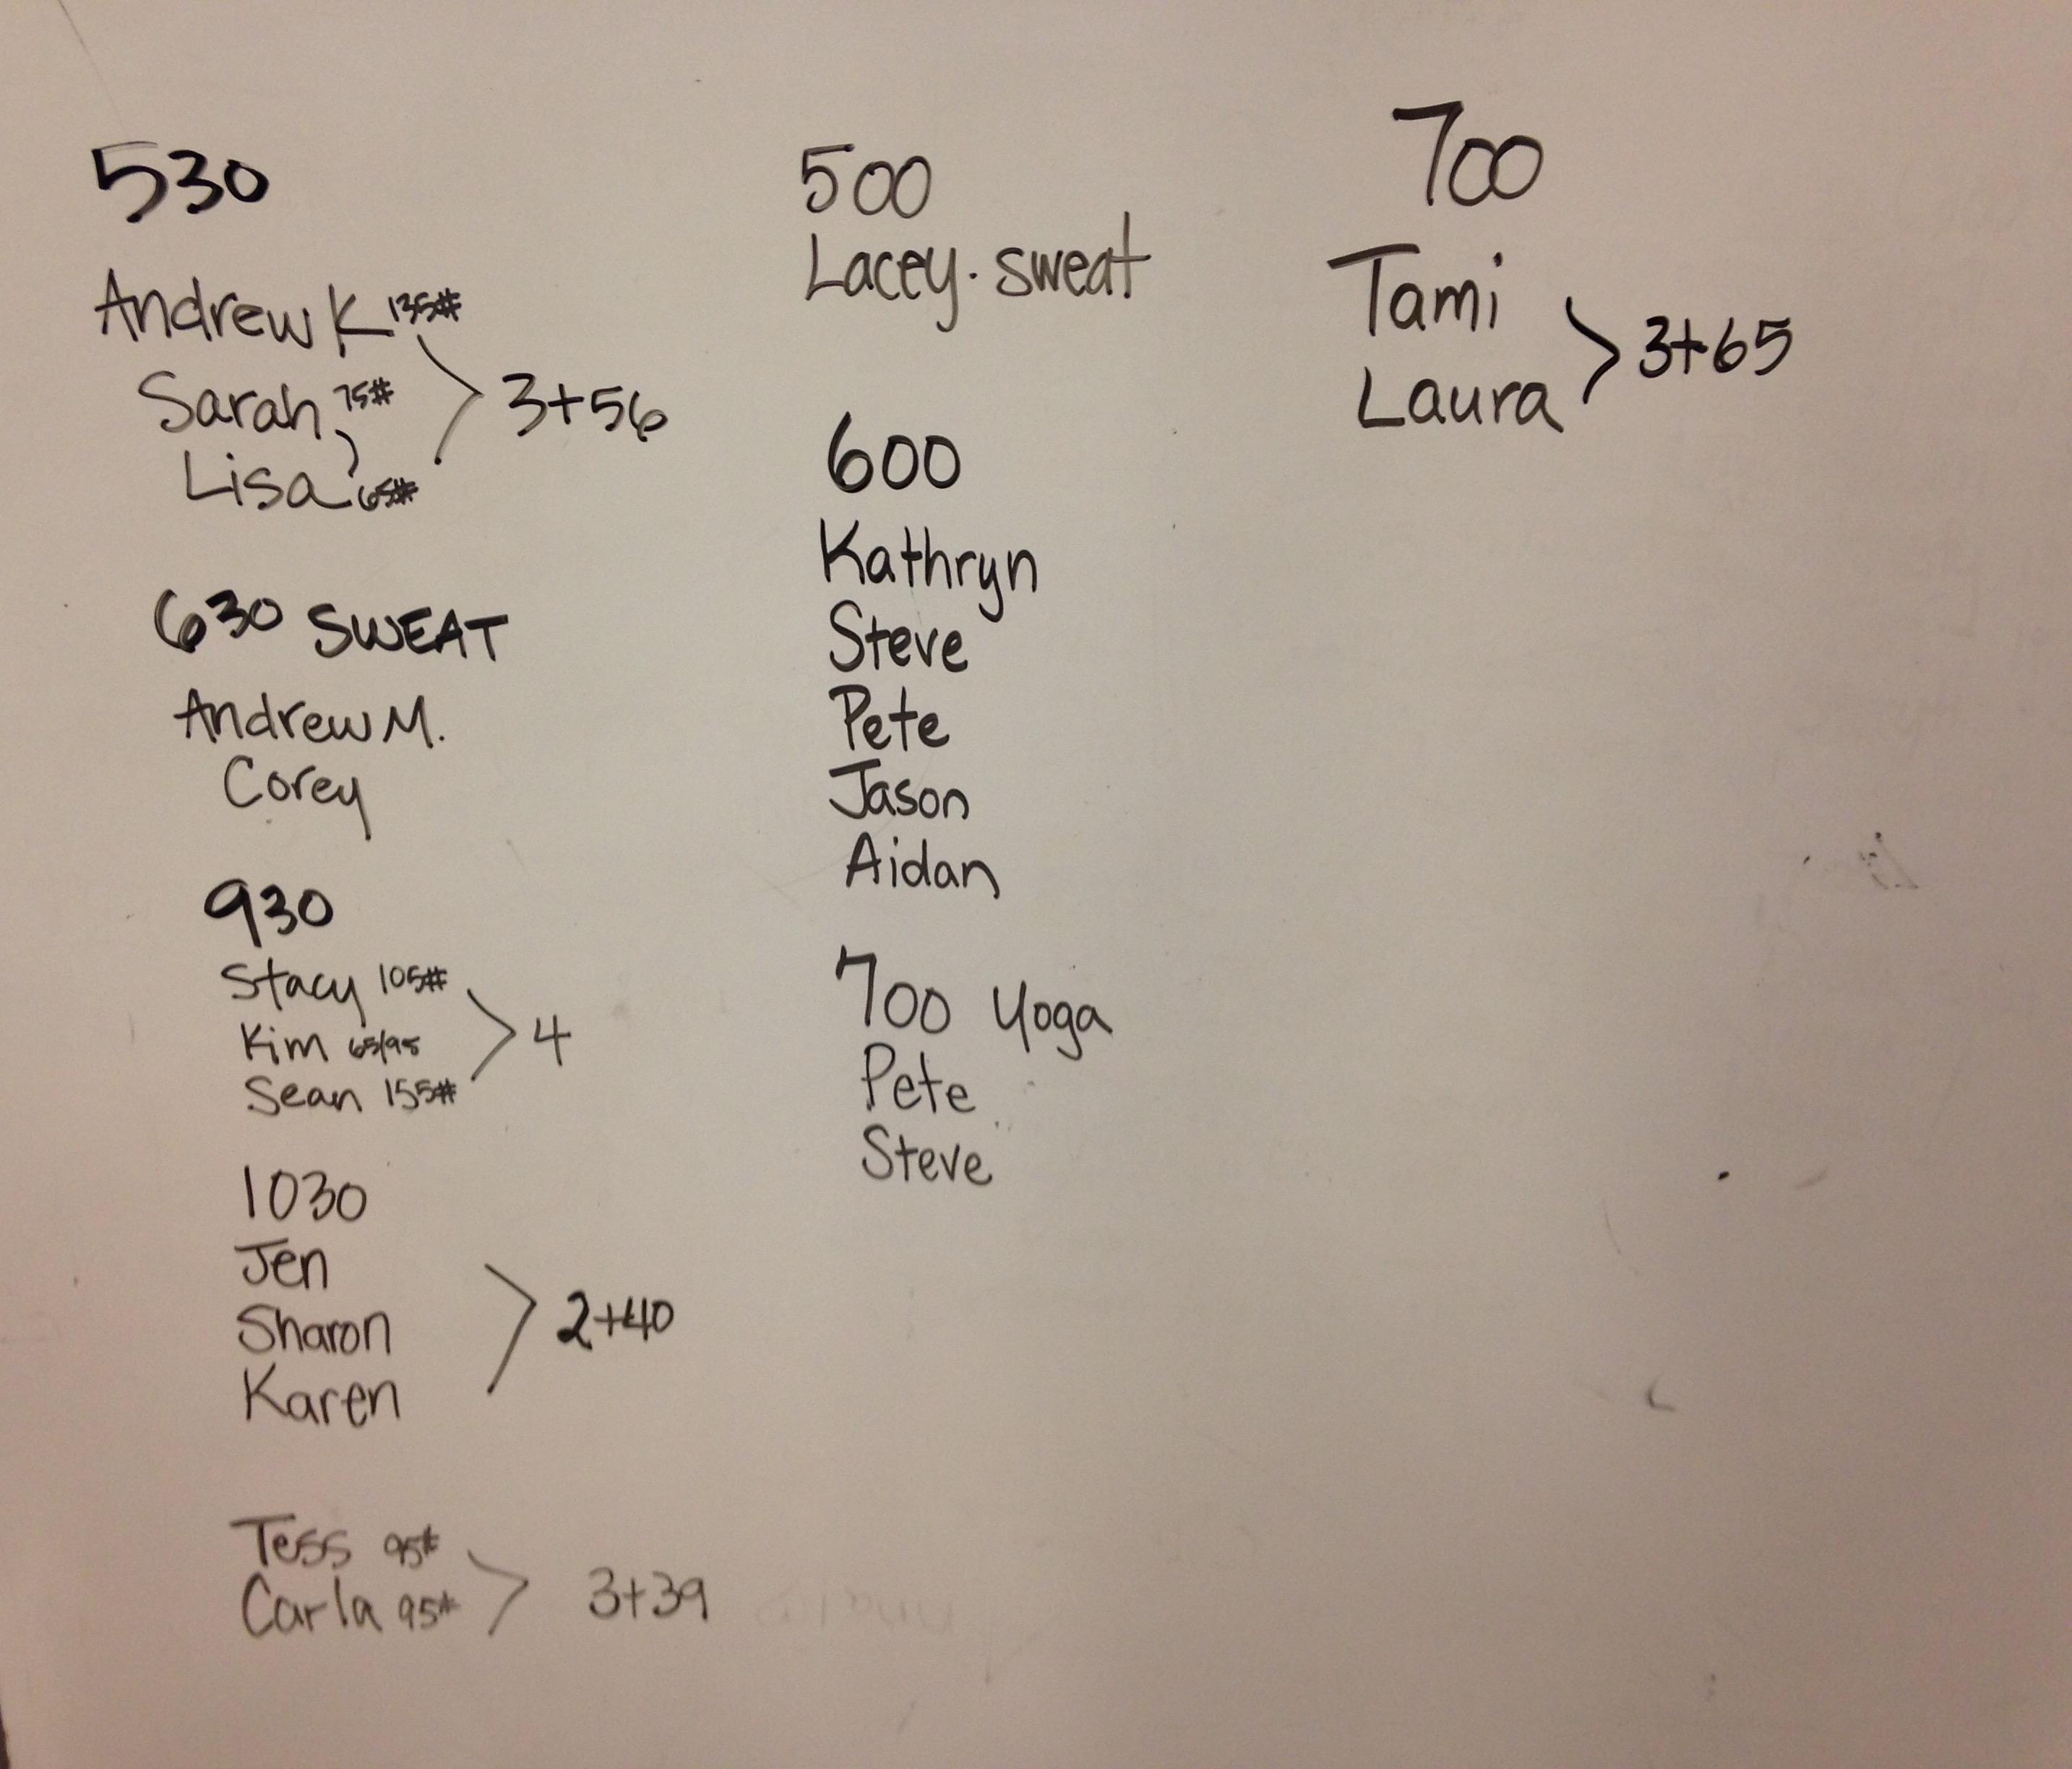 530
Andrew K 135#
Sarah 75#
Lisa 65#
3+56
630 SWEAT
Andrew M.
Corey
930
Stacy 105#
Kim 65/95
Sean 155#
4
1030
Jen
Sharon
Karen
2+40
Tess 95#
Carla 95#
3+39
500
Lacey. sweat
600
Kathryn
Steve
Pete
Jason
Aidan
700 Yoga
Pete
Steve
700
Tami
Laura
3+65